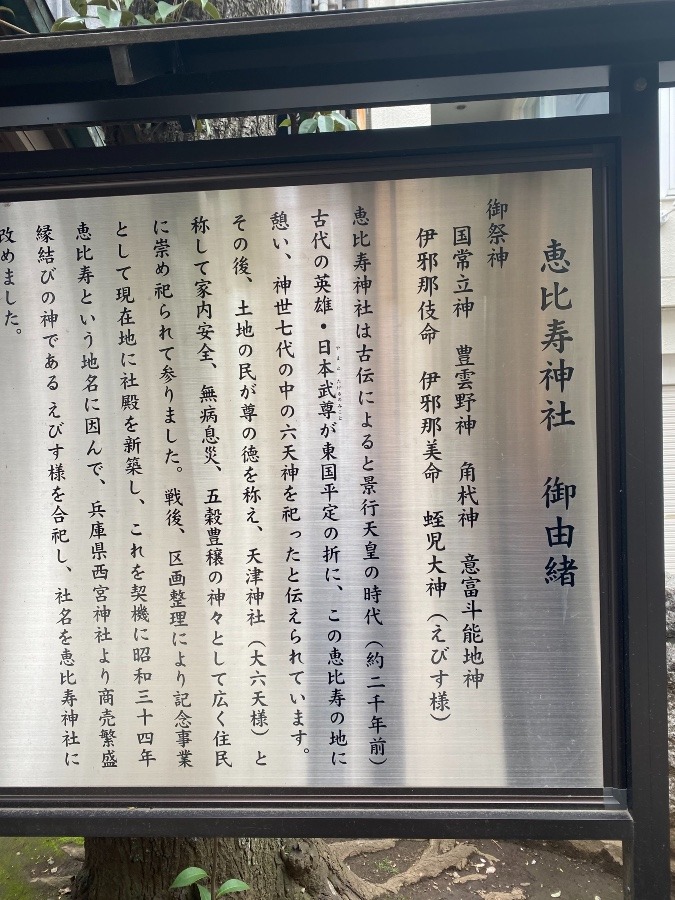 恵比寿神社 御由緒
御祭神
国常立神 豊雲野神 角杙神 意富斗能地神
伊邪那伎命 伊邪那美命 蛭児大神（えびす様）
恵比寿神社は古伝によると景行天皇の時代（約二千年前）
古代の英雄・日本武尊が東国平定の折に、この恵比寿の地に
やまとたけるのみこと
憩い、神世七代の中の六天神を祀ったと伝えられています。
その後、土地の民が尊の徳を称え、天津神社（大六天様）と
称して家内安全、無病息災、五穀豊穣の神々として広く住民
に崇め祀られて参りました。戦後、区画整理により記念事業
として現在地に社殿を新築し、これを契機に昭和三十四年
恵比寿という地名に因んで、兵庫県西宮神社より商売繁盛
縁結びの神である えびす様を合祀し、社名を恵比寿神社に
改めました。